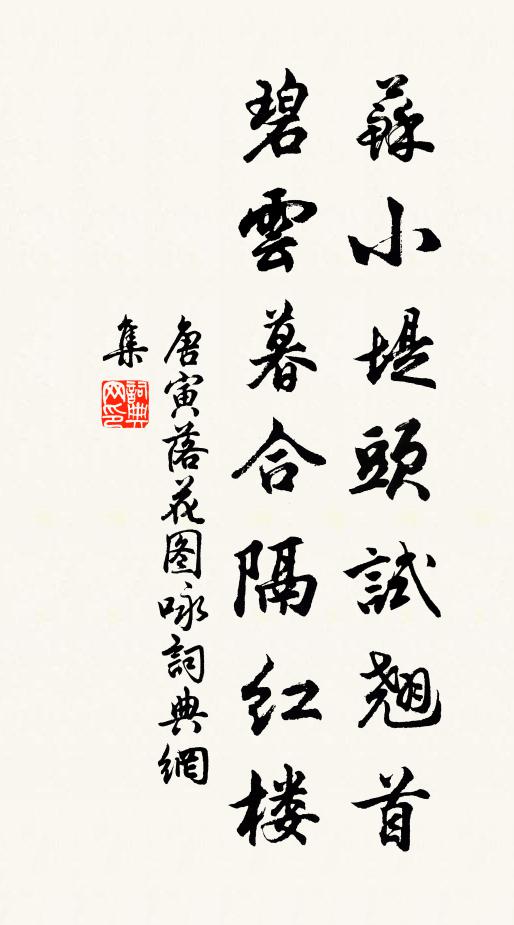 蘇小堤頭試翹首
碧雲暮合隔红楼
唐寅落花图咏詞典網
集
詞典網印